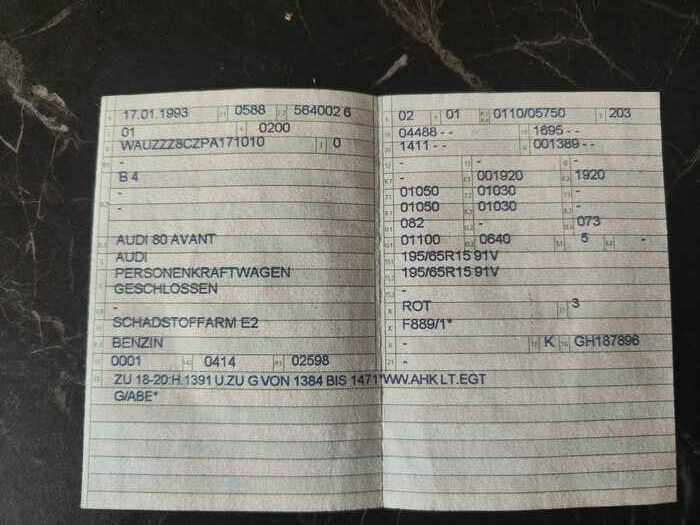 17.01.1993 0588 564002 6
01 0200
WAUZZZ8CZPA171010 0
-
B 4
-
-
AUDI 80 AVANT
AUDI
PERSONENKRAFTWAGEN
GESCHLOSSEN
-
SCHADSTOFFARM E2
BENZIN
0001 0414 02598
ZU 18-20:H.1391 U.ZU G VON 1384 BIS 1471*WW.AHK LT.EGT
G/ABE*
02 01 0110/05750 203
04488 - - 1695 - -
1411 - - 001389 - -
- - -
- 001920 1920
01050 01030 -
01050 01030 -
082 - 073
01100 0640 5 -
195/65R15 91V
195/65R15 91V
-
ROT 3
F889/1*
- K GH187896
-